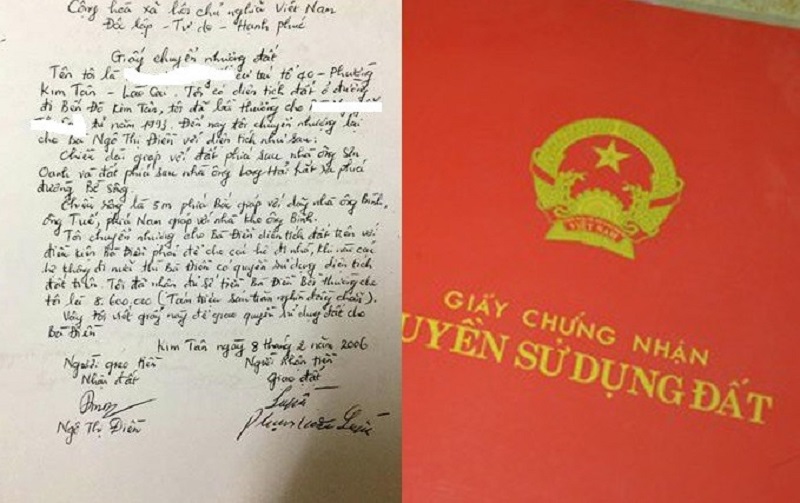 Cộng hoà xã hội chủ nghĩa Việt Nam
Độc lập - Tự do - Hạnh phúc
Giấy chuyển nhượng đất
Tên tôi là cư trú tổ 40 - Phường
Kim Tân - Lào Cai. Tôi có diện tích đất ở đường
đi Bến Đò Kim Tân, tôi đã bồi thường cho
từ năm 1993. Đến nay tôi chuyển nhượng lại
cho Bà Ngô Thị Điền với diện tích như sau:
Chiều dài giáp với đất phía sau nhà ông Sơn
Oanh và đất phía sau nhà ông Long Hải
đường Bờ sông.
Chiều rộng là 5m phía Bắc giáp với dãy nhà ông Bình,
ông Tuế, phía Nam giáp với nhà kho ông Bình.
Tôi chuyển nhượng cho Bà Điền diện tích đất trên với
điều kiện Bà Điền phải để cho các hộ đi nhờ, khi nào các
hộ không đi nữa thì Bà Điền có quyền sử dụng diện tích
đất trên. Tôi đã nhận đủ số tiền Bà Điền Bồi thường cho
tôi là 8.600,000 (Tám triệu sáu trăm nghìn đồng chẵn).
Vậy tôi viết giấy này để giao quyền sử dụng đất cho
Bà Điền
Kim Tân ngày 8 tháng 2 năm 2006
Người giao tiền
Nhận đất
Ngô Thị Điền
Người nhận tiền
Giao đất
VIỆT NAM
GIẤY CHỨNG NHẬN
UYỀN SỬ DỤNG ĐẤT